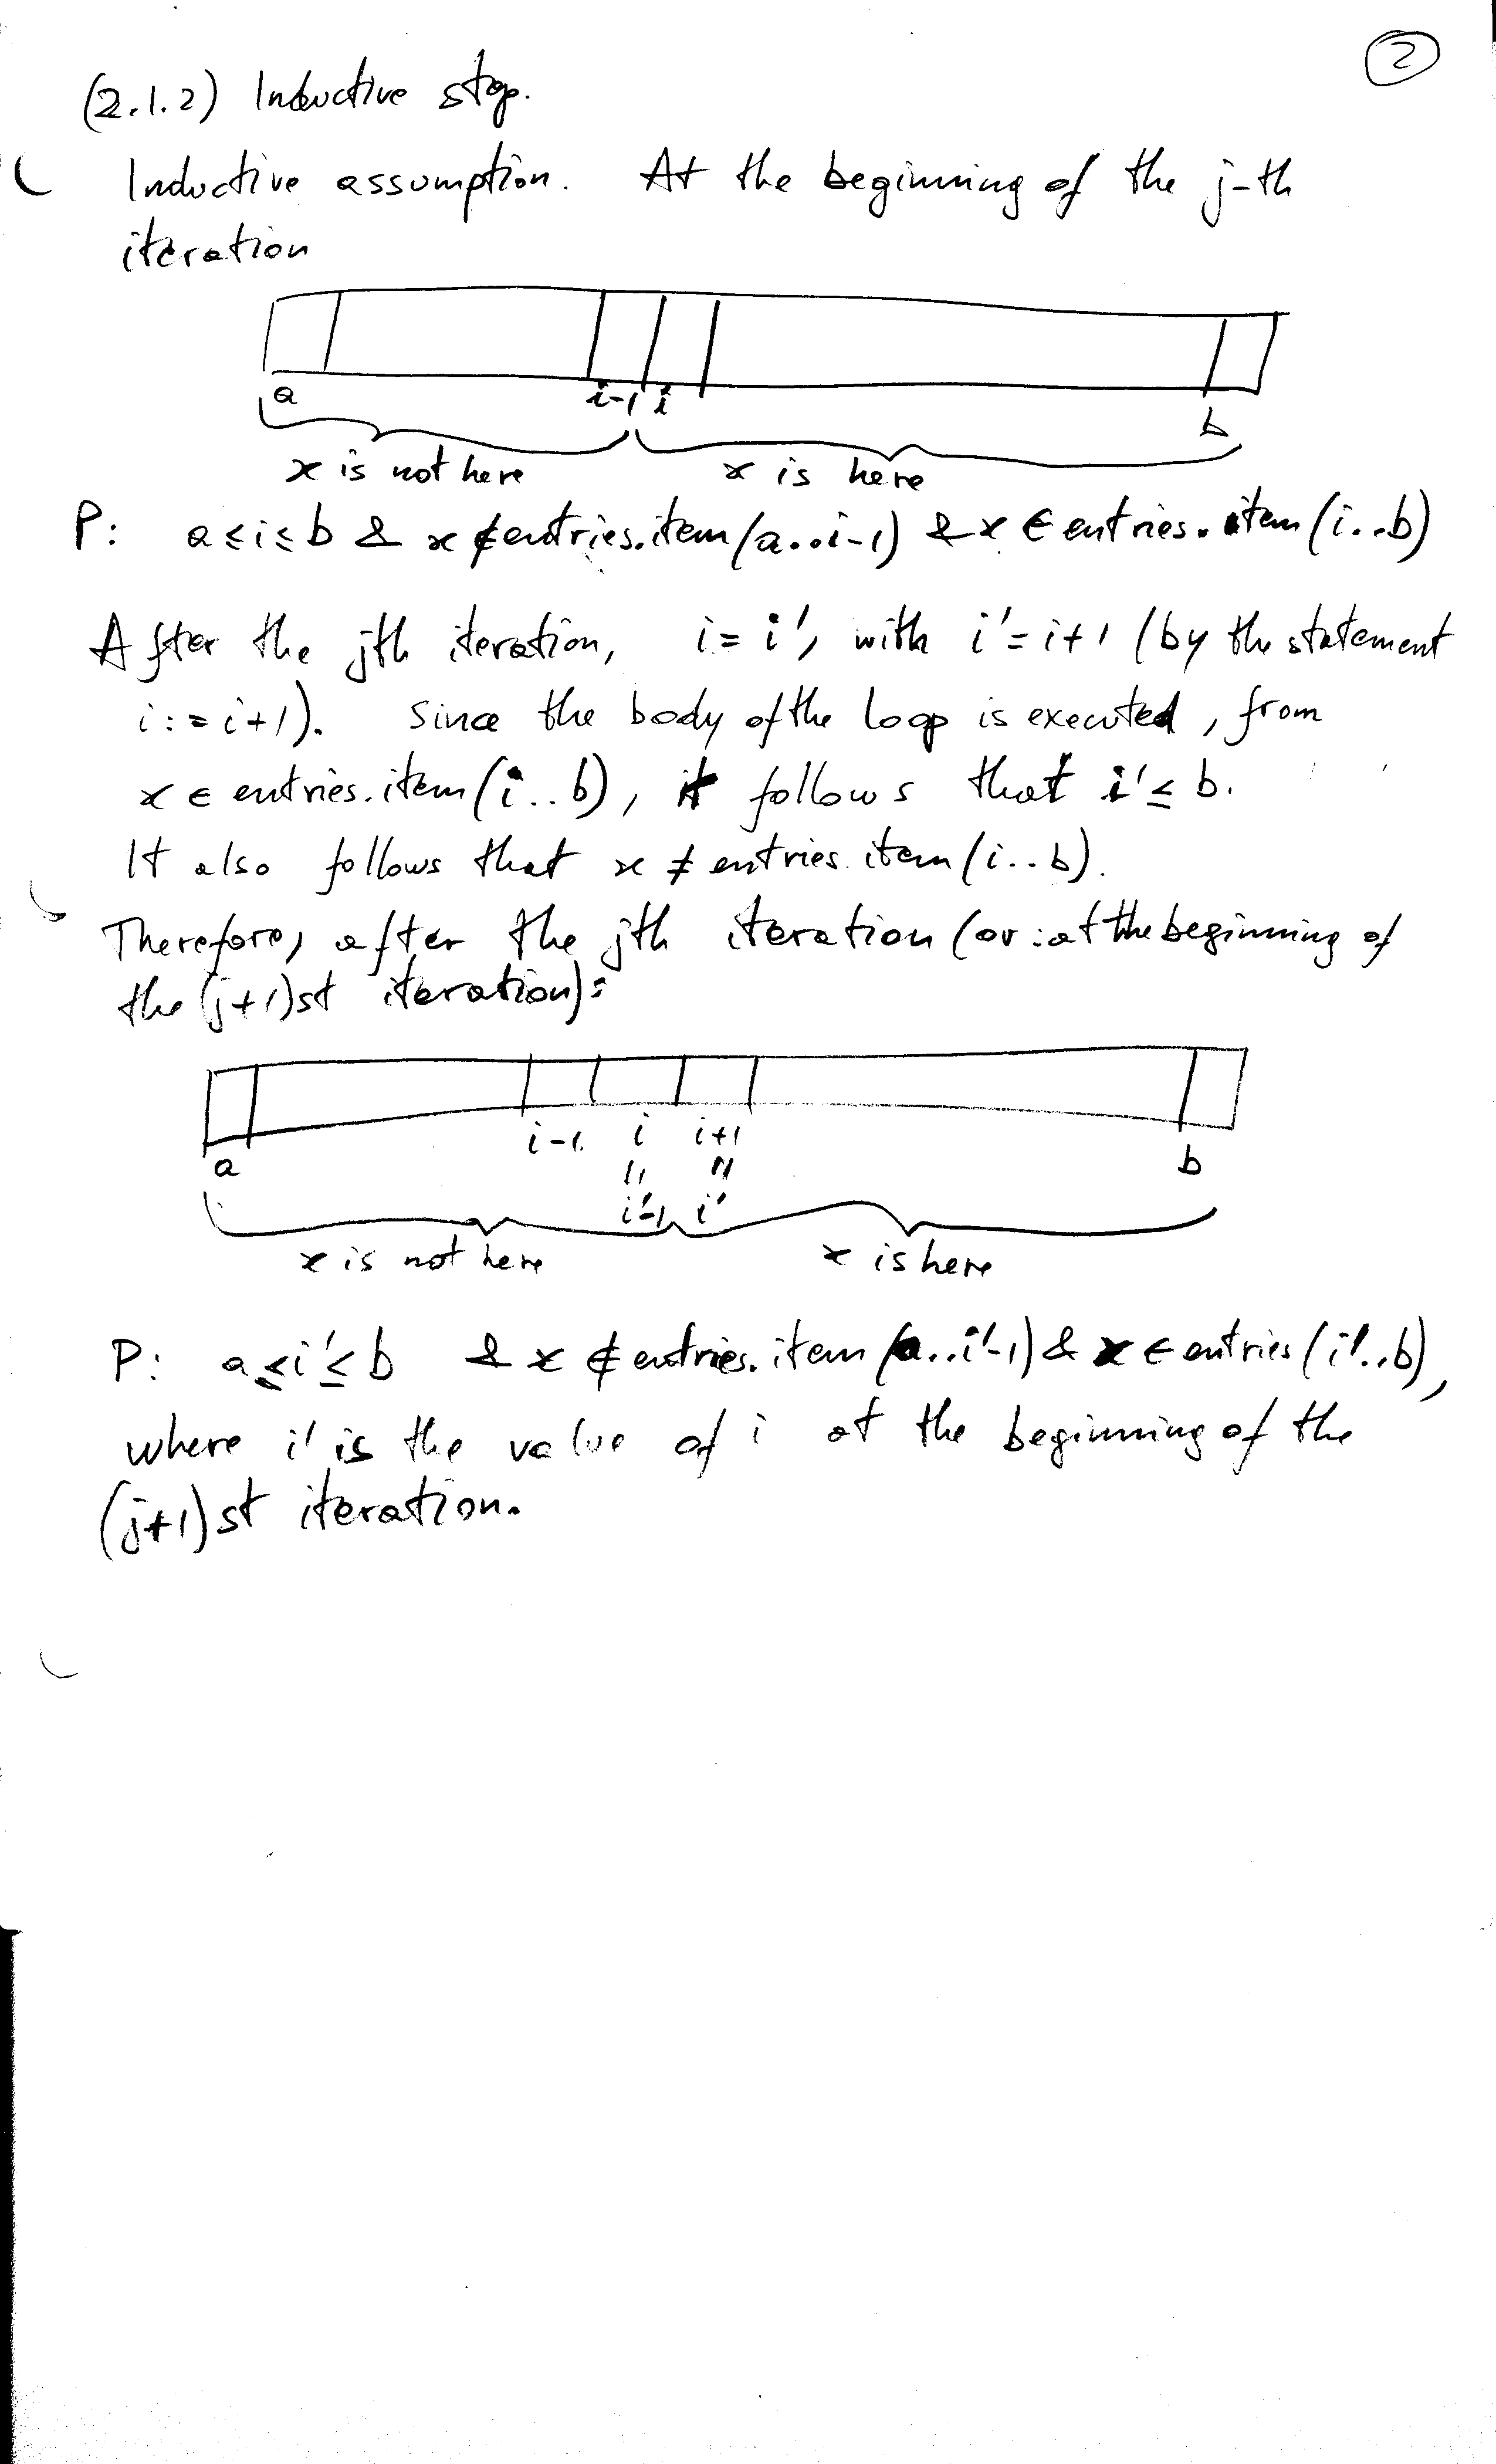 2
(2.1.2) Inductive step.
Inductive assumption. At the beginning of the j-th
iteration
a i-1 i b
x is not here x is here
P: a ≤ i ≤ b & x ∉ entries.item (a..i-1) & x ∈ entries.item (i..b)
After the jth iteration, i = i', with i' = i+1 (by the statement
i := i+1). Since the body of the loop is executed, from
x ∈ entries.item (i..b), it follows that i' ≤ b.
It also follows that x ≠ entries.item (i..b).
Therefore, after the jth iteration (or: at the beginning of
the (j+1)st iteration):
i-1 i i+1
a = = b
i'-1 i'
x is not here x is here
P: a ≤ i' ≤ b & x ∉ entries.item (a..i'-1) & x ∈ entries (i'..b),
where i' is the value of i at the beginning of the
(j+1)st iteration.